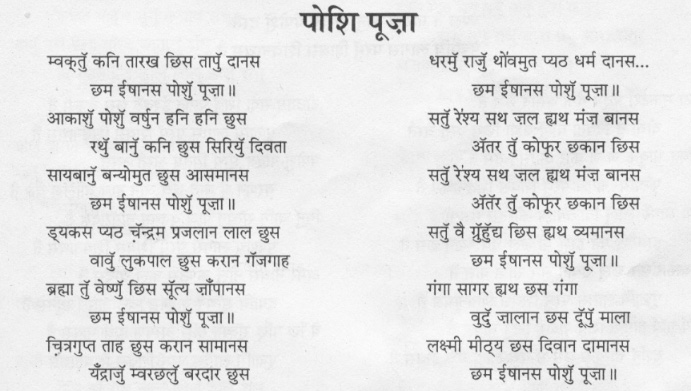 पोशि पूज़ा
म्वकॖतुॅ कनि तारख छिस तापुॅ दानस
छम ईषानस पोशुॅ पूज़ा॥
आकाशुॅ पोशुॅ वर्षुन हनि हनि छुस
रथुॅ बानुॅ कनि छुस सिरियुॅ दिवता
सायबानुॅ बन्योमुत छुस आसमानस
छम ईषानस पोशुॅ पूज़ा॥
ड्यकस प्यठ चॅन्द्रम प्रज़लान लाल छुस
वावुॅ लुकपाल छुस करान गॅजगाह
ब्रह्मा तुॅ वेष्णुॅ छिस सूॅत्य ज़ॉंपानस
छम ईषानस पोशुॅ पूज़ा॥
चित्रगुप्त ताह छुस करान सामानस
यॅंद्राज़ुॅ म्वरछलुॅ बरदार छुस
धरमुॅ राज़ुॅ थोंवमुत प्यठ धर्म दानस...
छम ईषानस पोशुॅ पूज़ा॥
सतुॅ रेंश्य सथ ज़ल ह्यथ मंज़ बानस
अॅतर तुॅ कोफूर छकान छिस
सतुॅ रेंश्य सथ ज़ल ह्यथ मंज़ बानस
अॅतॅर तुॅ कोफूर छकान छिस
सतुॅ वै ग्रुॅहुॅद्य छिस ह्यथ व्यमानस
छम ईषानस पोशुॅ पूज़ा॥
गंगा सागर ह्यथ छस गंगा
वुदुॅ ज़ालान छस दूॅपुॅ माला
लक्ष्मी मीठ्य छस दिवान दामानस
छम ईषानस पोशुॅ पूज़ा॥